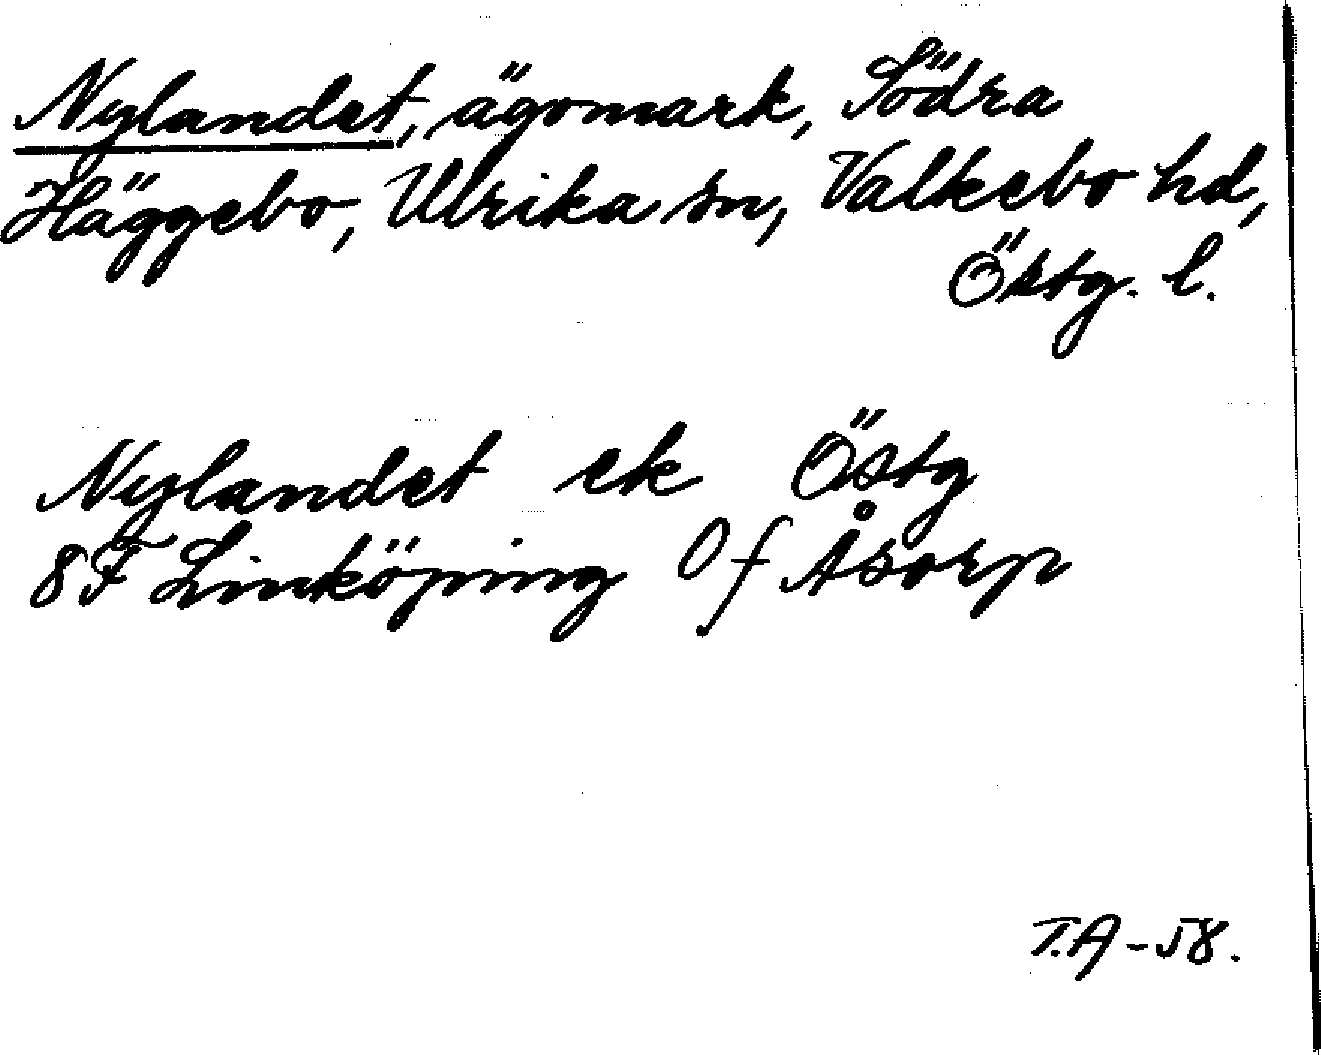 Nylandet, ägomark, Södra
Häggebo, Ulrika sn, Valkebo hd,
Östg. l.
Nylandet ek Östg
8F Linköping 0f Åsorp
T.A-58.